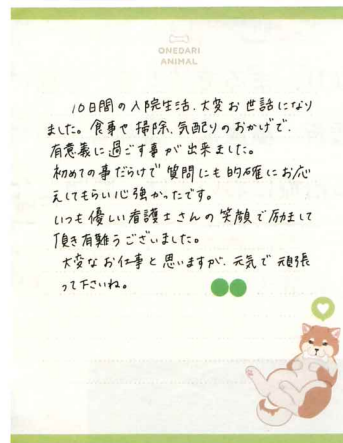 ONEDARI
ANIMAL
10日間の入院生活、大変お世話になり
ました。食事や掃除、気配りのおかげで、
有意義に過ごす事が出来ました。
初めての事だらけで質問にも的確にお応
えしてもらい心強かったです。
いつも優しい看護士さんの笑顔で励まして
頂き有難うございました。
大変なお仕事と思いますが、元気で頑張
って下さいね。